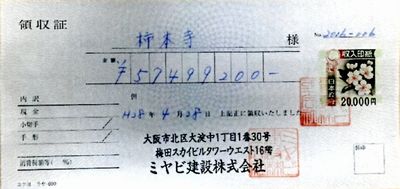 領収証
No. 2016-006
柿本寺 様
金額
¥57499200-
収入印紙
日本政府
20,000円
但
H28年4月28日 上記正に領収いたしました
内訳
現金
小切手
手形
消費税額等(%)
大阪市北区大淀中1丁目1番30号
梅田スカイビルタワーウエスト16階
ミヤビ建設株式会社